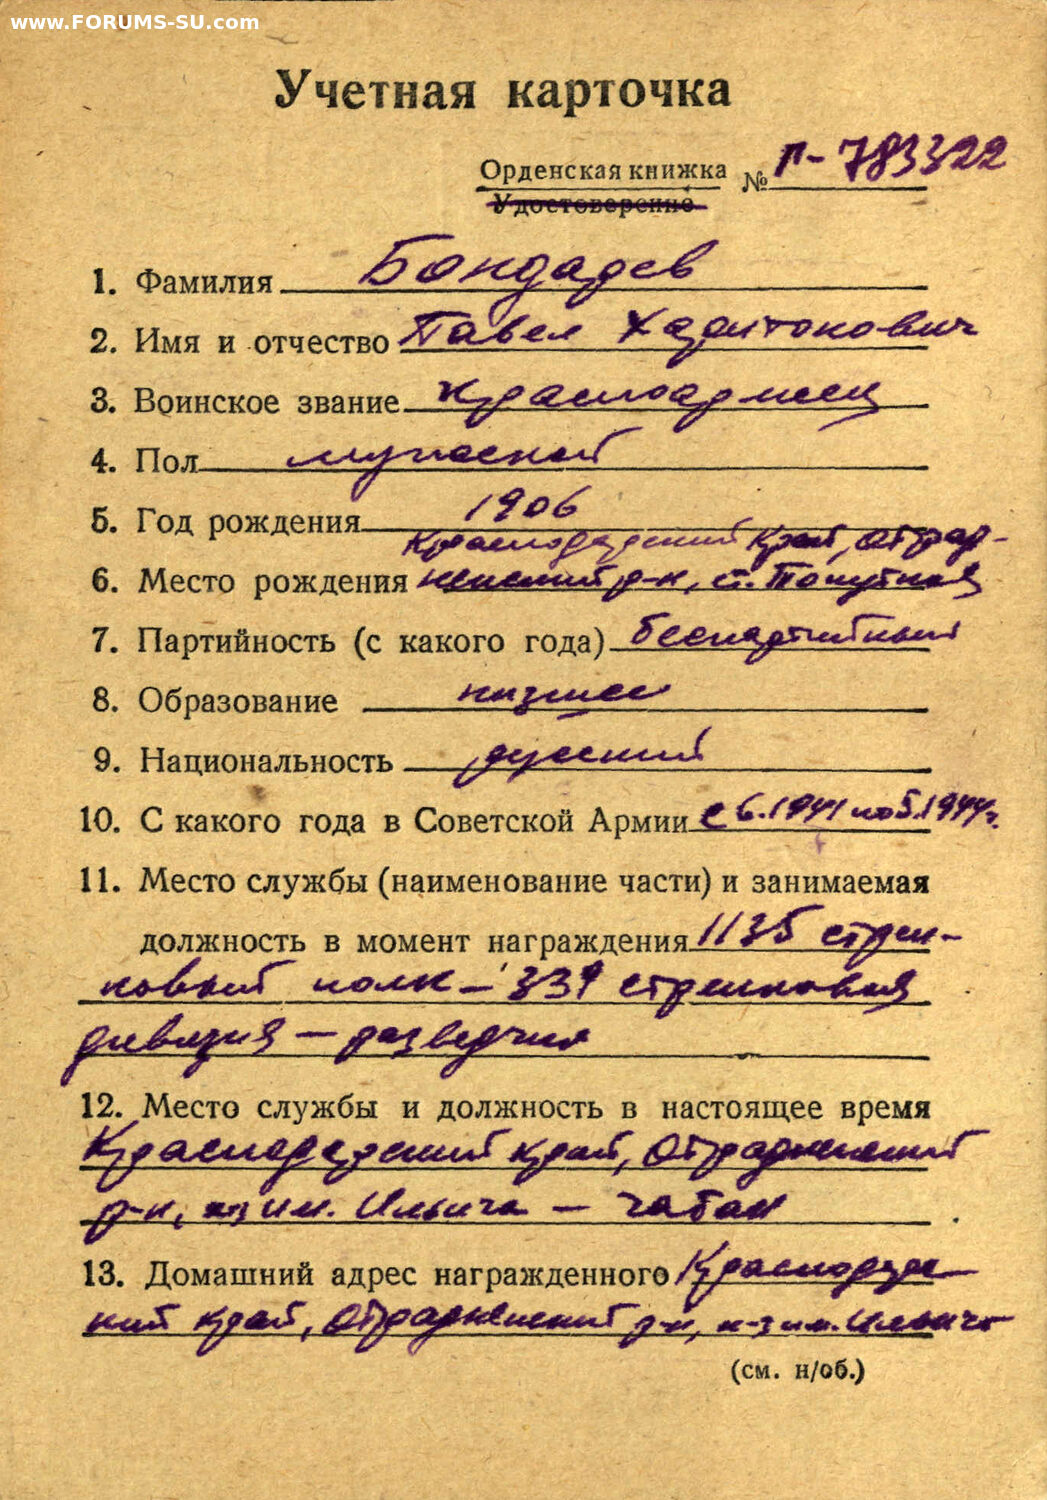 www.FORUMS-SU.com
Учетная карточка
Орденская книжка № П-783322
Удостоверение
1. Фамилия Бондарев
2. Имя и отчество Павел Харитонович
3. Воинское звание красноармеец
4. Пол мужской
5. Год рождения 1906
Краснодарский край, Отрад-
6. Место рождения ненский р-н, ст. Попутная
7. Партийность (с какого года) беспартийный
8. Образование низшее
9. Национальность русский
10. С какого года в Советской Армии с 6.1941 по 5.1944г.
11. Место службы (наименование части) и занимаемая
должность в момент награждения 1135 стрел-
ковый полк – 339 стрелковая
дивизия – разведчик
12. Место службы и должность в настоящее время
Краснодарский край, Отрадненский
р-н, к-з им. Ильича – чабан
13. Домашний адрес награжденного Краснодарс-
кий край, Отрадненский р-н, к-з им. Ильича
(см. н/об.)